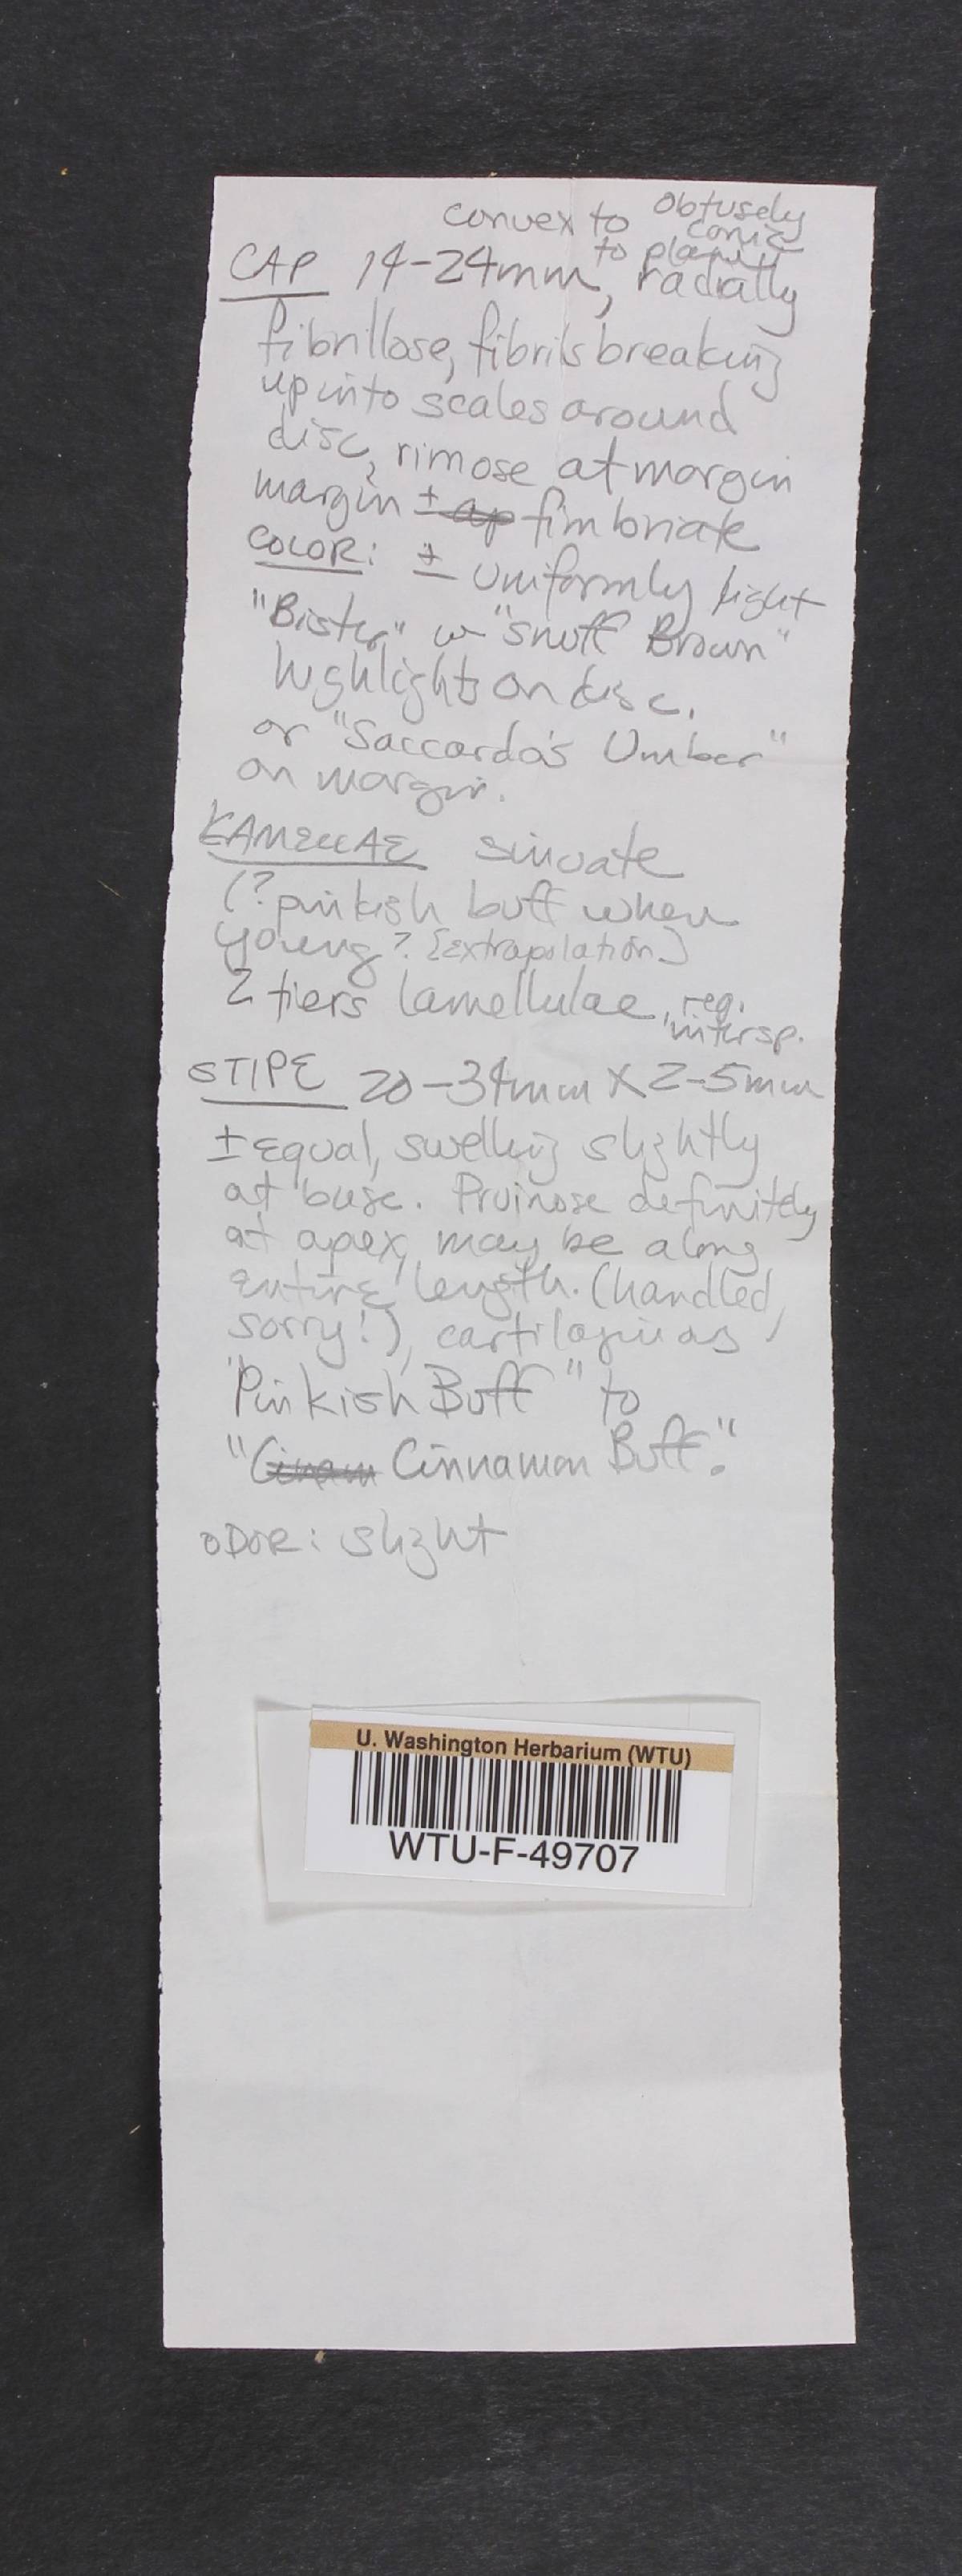 convex to Obtusely
conic
to plane
CAP 14-24mm, radially
fibrillose, fibrils breaking
up into scales around
disc, rimose at margin
margin ± fimbriate
COLOR: ± uniformly light
"Bister" w "Snuff Brown"
highlights on disc.
or "Saccardo's Umber"
on margin.
LAMELLAE sinuate
(? pinkish buff when
young? [extrapolation]
2 tiers lamellulae, reg.
intersp.
STIPE 20-34mm X 2-5mm
± equal, swelling slightly
at base. Pruinose definitely
at apex, may be along
entire length. (handled,
sorry!), cartilaginous
"Pinkish Buff" to
"Cinnamon Buff."
ODOR: slight
U. Washington Herbarium (WTU)
WTU-F-49707